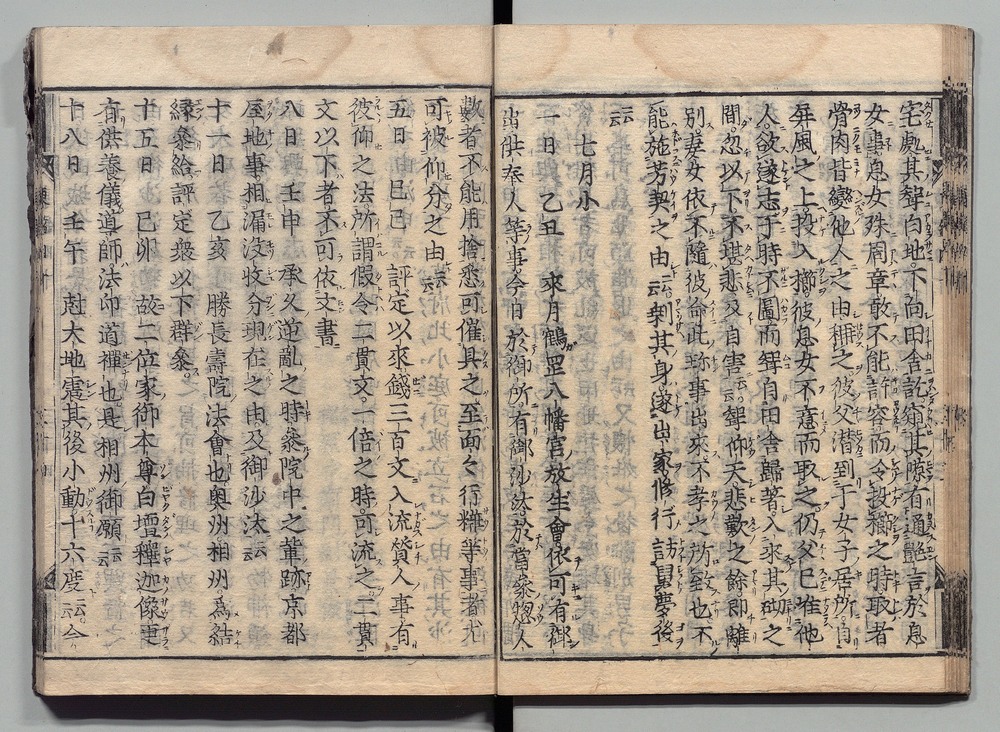 宅處其聟白地下向田舎訖窺其隙有通艶言於息
女事息女殊周章敢不能許容而令投櫛之時取者
骨肉皆變他人之由稱之彼父潜到于女子居所自
屏風之上投入櫛彼息女不意而取之仍父已准他
人欲遂志于時不圖而聟自田舎歸著入來其砌之
間忽以下不堪悲及自害云云聟仰天悲歎之餘即離
別妻女依不隨彼命此珎事出來不孝之所至也不
能施芳契之由云云剰其身遂出家修行訪舅夢後
云云
七月小
一日 乙丑 來月鶴罡八幡宮放生會依可有御
出供奉人等事今日於御所有御沙汰於當參惣人
數者不能用捨悉可催具之至面々行粧等事者尤
可被仰分之由云云
五日 己巳 評定以來錢三百文入流質人事有
彼仰之法所謂假令二貫文一倍之時可流之二貫
文以下者不可依文書
八日 壬申 承久逆亂之時參院中之輩跡京都
屋地事相漏没收分現在之由及御沙汰云云
十一日 乙亥 勝長壽院法會也奥州相州為結
縁參給評定衆以下群參
十五日 己卯 故二位家御本尊白壇釋迦像更
有供養儀導師法印道禪也是相州御願云云
十八日 壬午 尅大地震其後小動十六度云云今